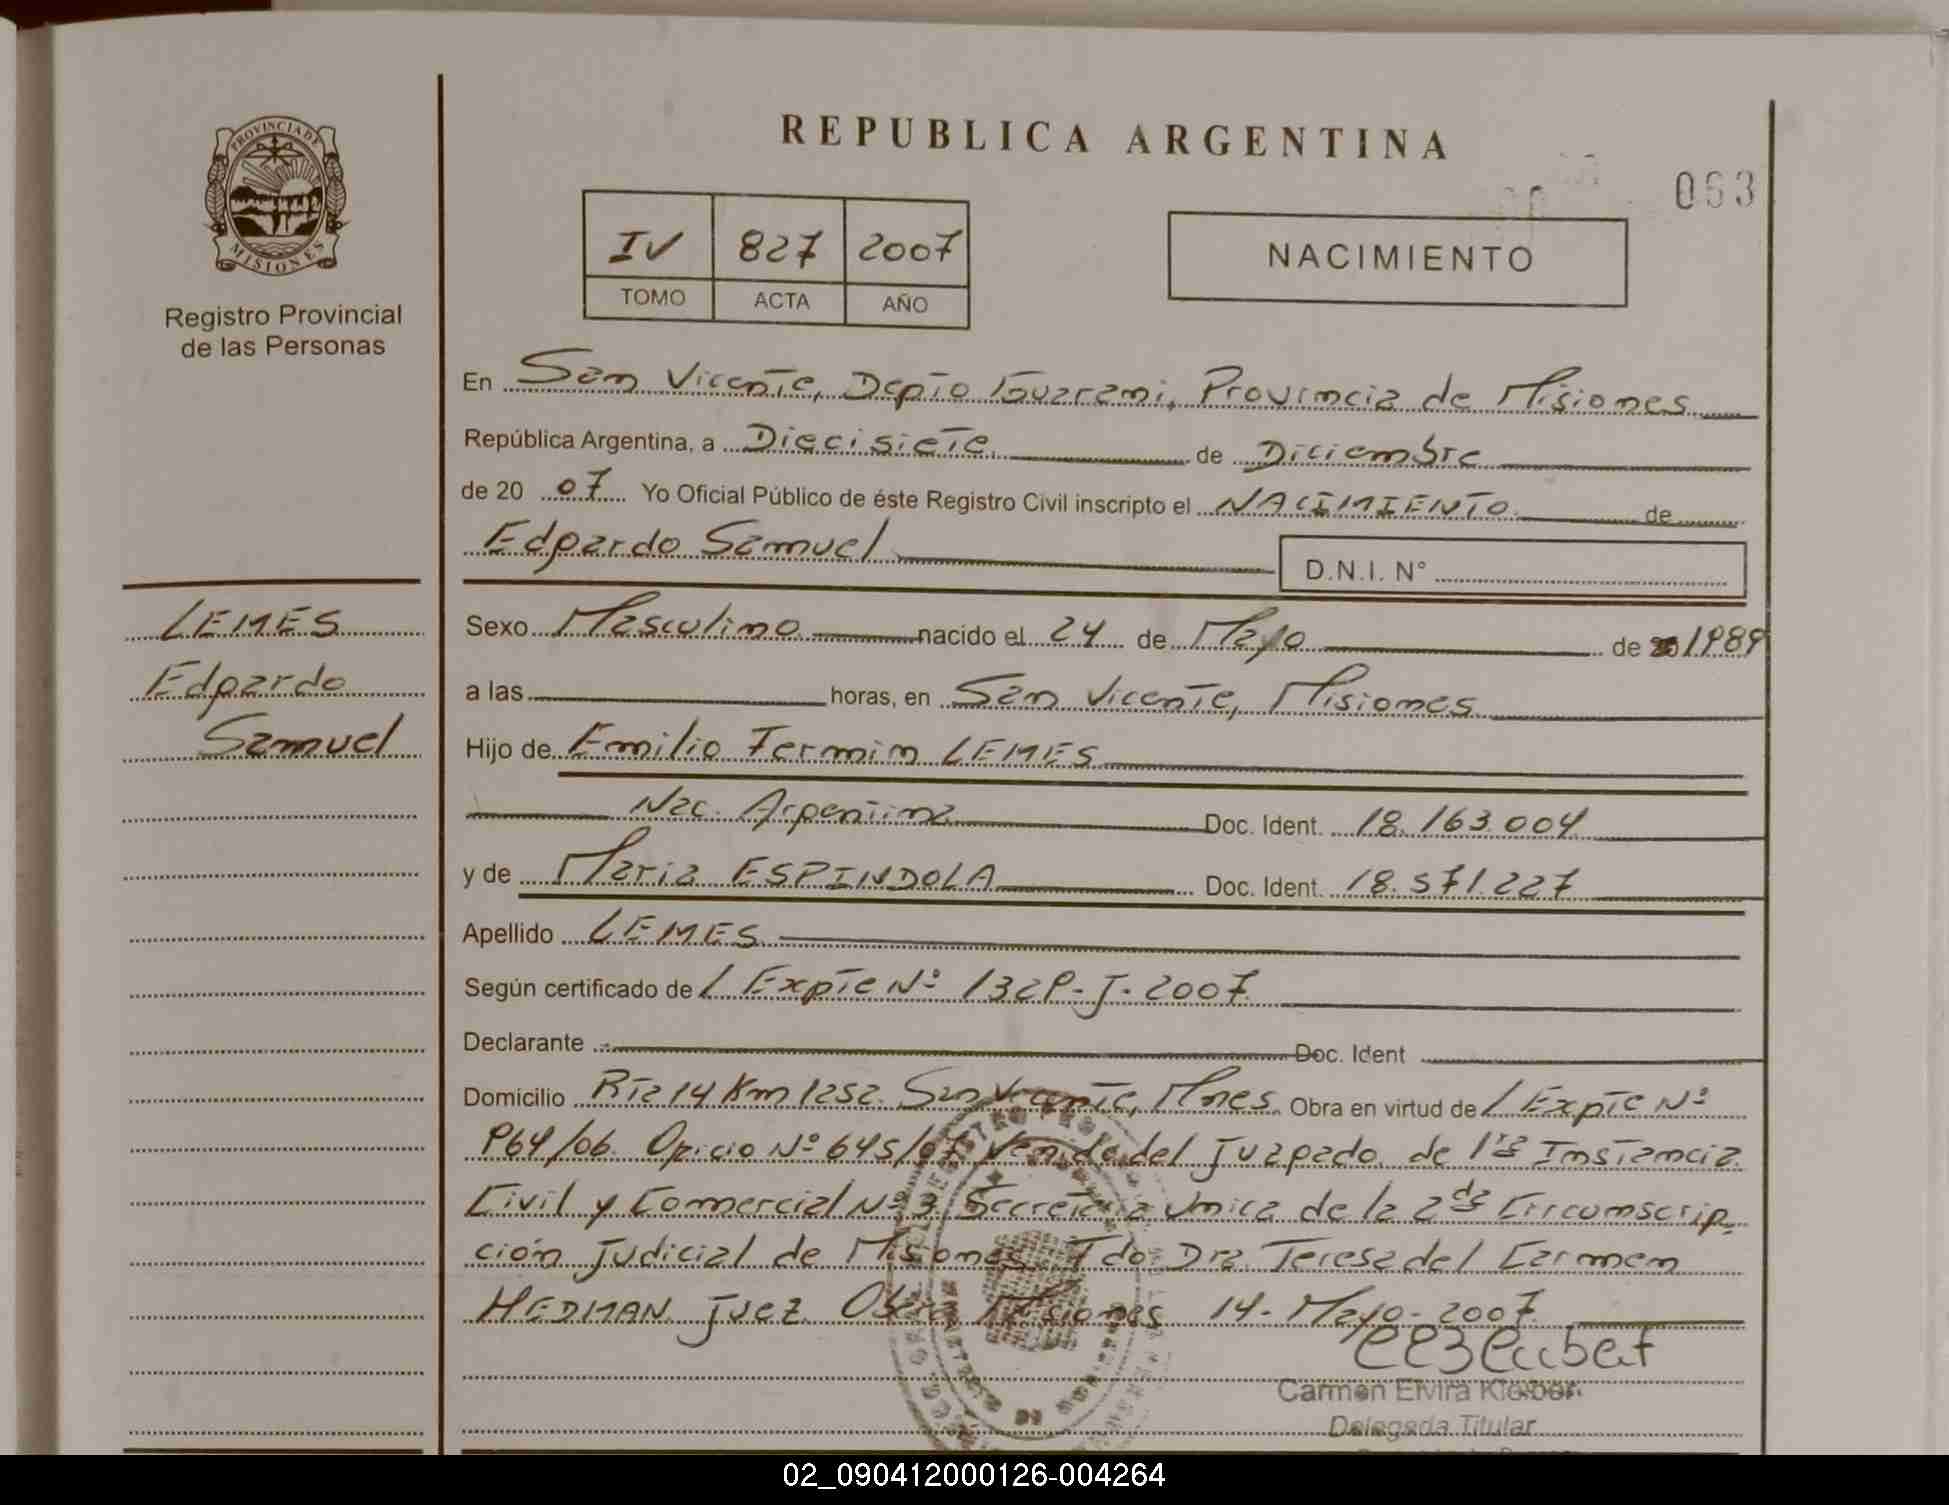 PROVINCIA DE
MISIONES
Registro Provincial
de las Personas
REPUBLICA ARGENTINA
063
IV 827 2007
TOMO ACTA AÑO
NACIMIENTO
En San Vicente, Depto Guarani, Provincia de Misiones
República Argentina, a Diecisiete de Diciembre
de 20 07 Yo Oficial Público de éste Registro Civil inscripto el NACIMIENTO de
Edgardo Samuel D.N.I. N°
LEMES
Edgardo
Samuel
Sexo Masculino nacido el 24 de Mayo de 1989
a las horas, en San Vicente, Misiones
Hijo de Emilio Fermin LEMES
Nac. Argentina Doc. Ident. 18.163.004
y de Maria ESPINDOLA Doc. Ident. 18.571.227
Apellido LEMES
Según certificado de / Expte Nº 1329-J-2007
Declarante Doc. Ident
Domicilio Rta 14 Km 1252. San Vicente, Mnes. Obra en virtud de / Expte Nº
964/06. Oficio Nº 645/07 Venido del juzgado de 1ra Instancia
Civil y Comercial Nº 3 Secretaria Unica de la 2da Circumscrip_
ción judicial de Misiones Fdo Dra. Teresa del Carmen
HEDMAN juez Obera Misiones 14-Mayo-2007
Carmen Elvira Kleiber
Delegada Titular
02_090412000126-004264